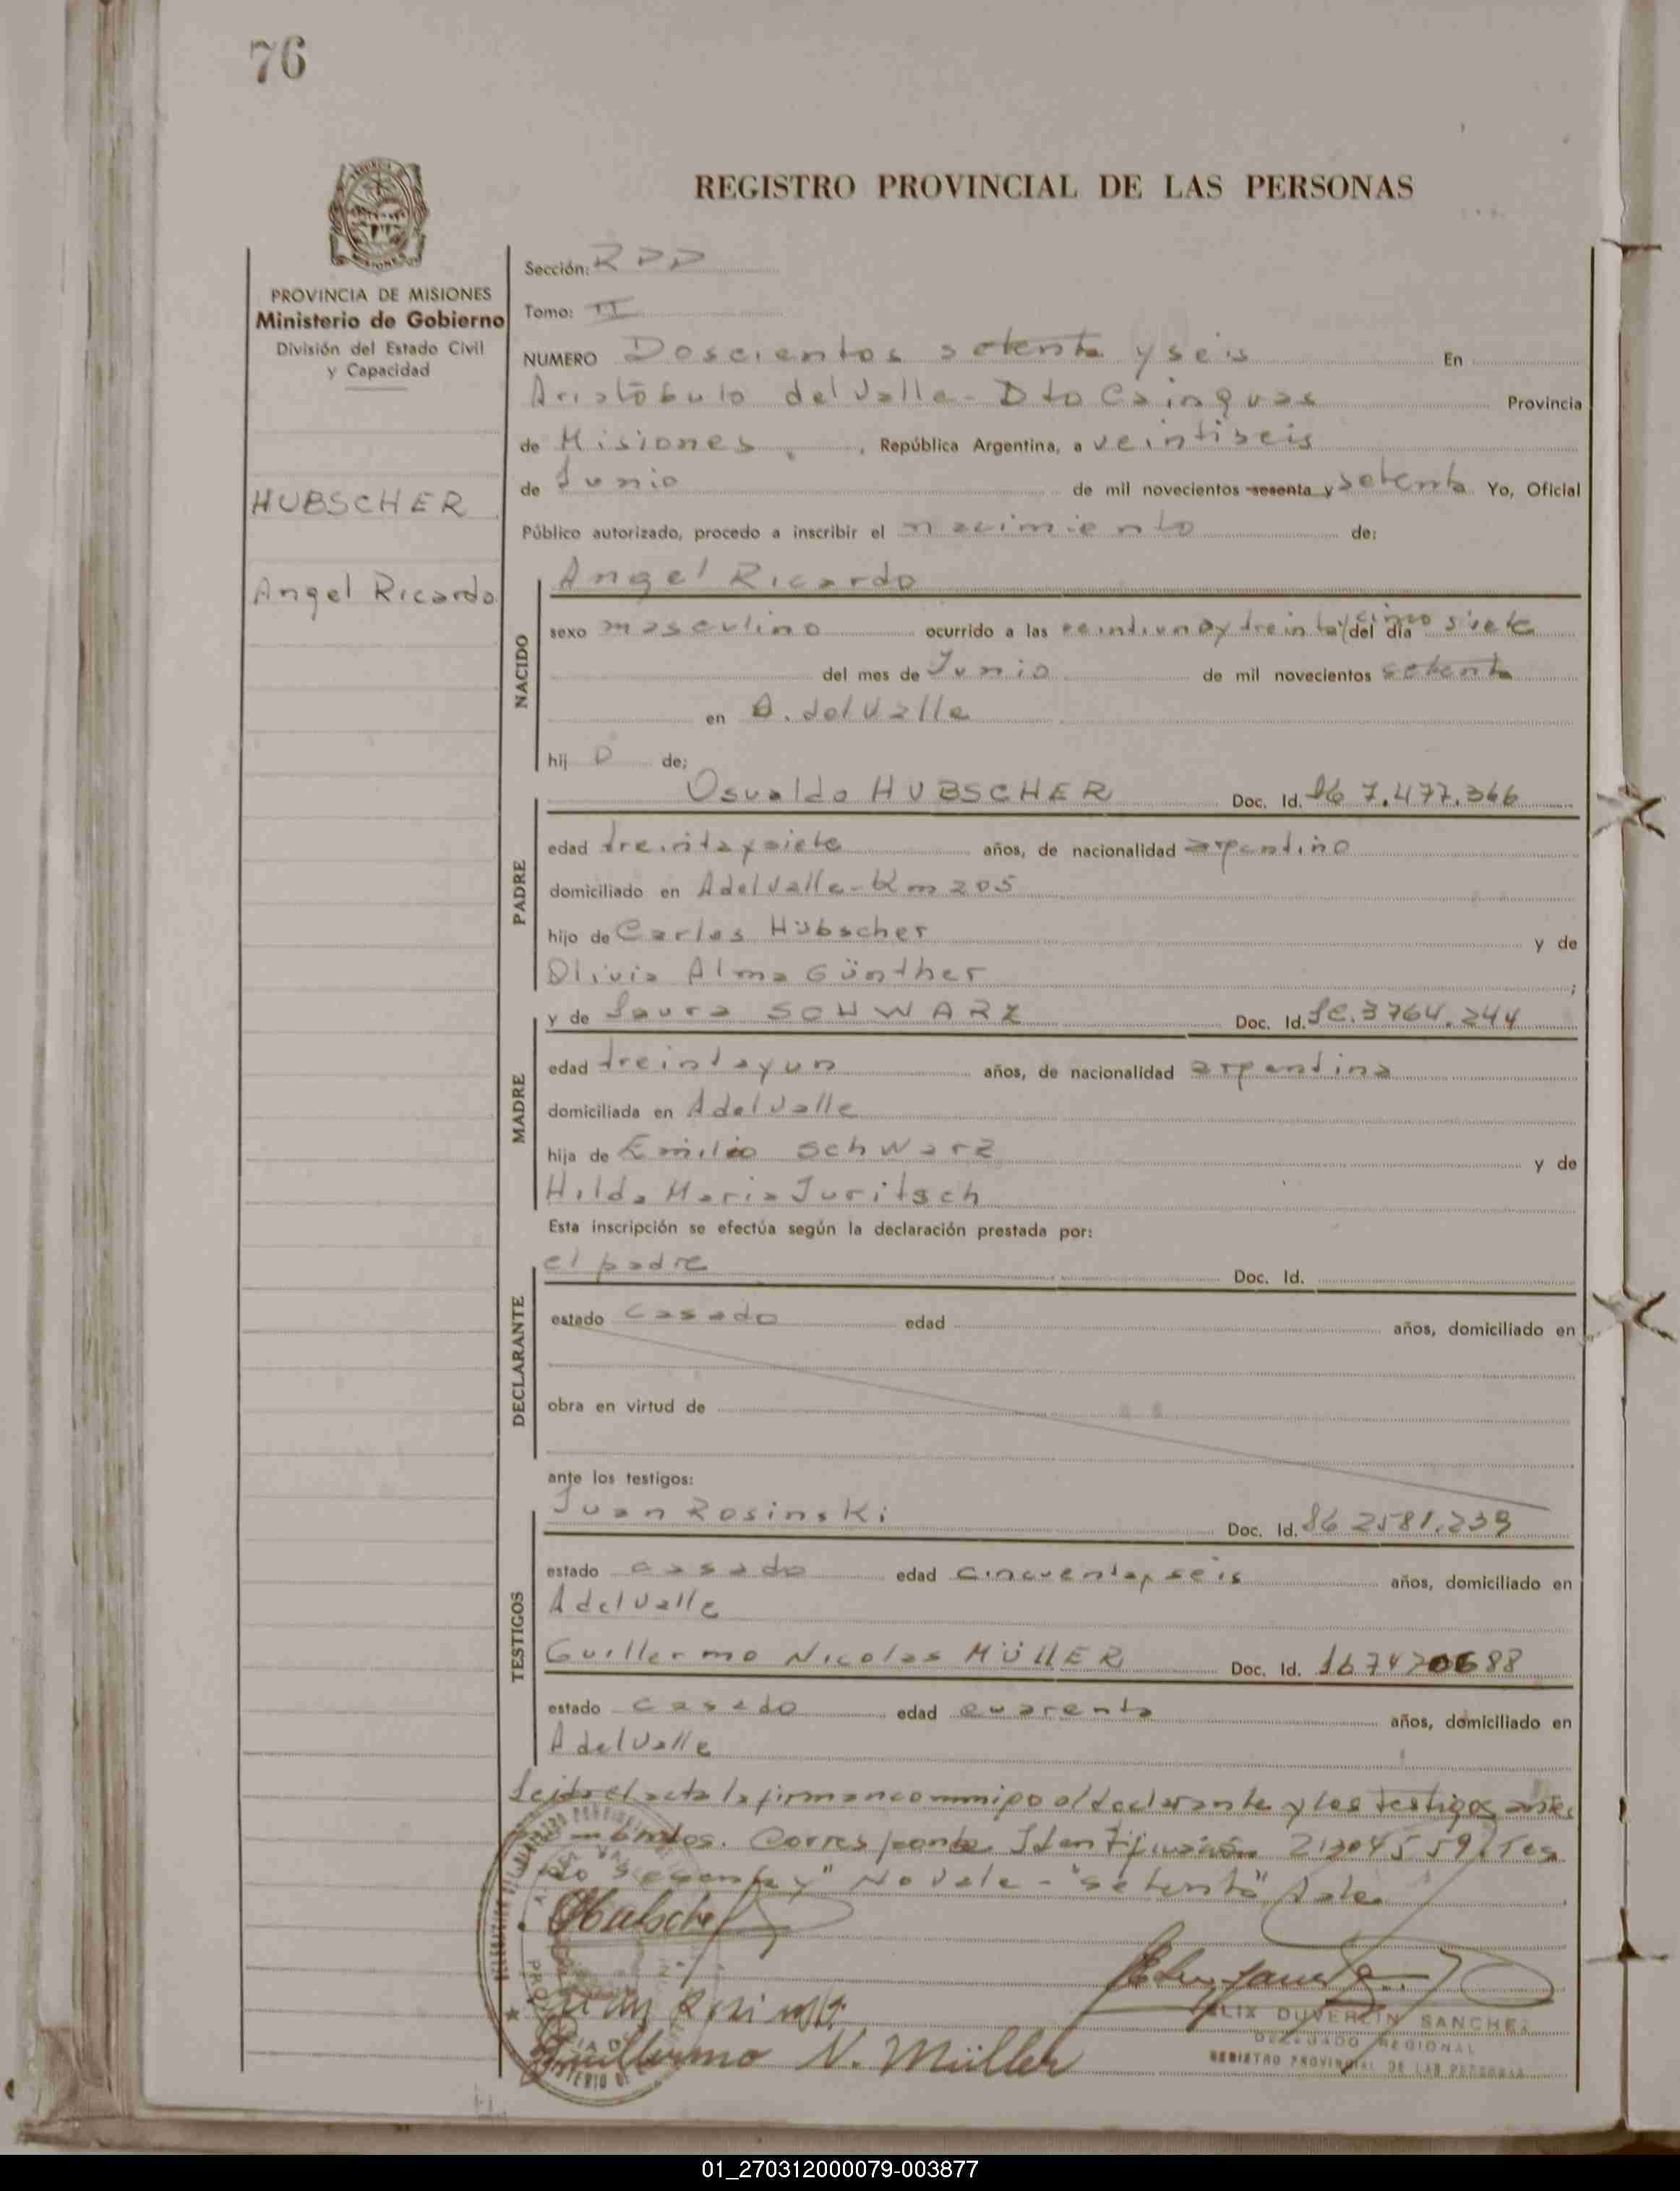 76
REGISTRO PROVINCIAL DE LAS PERSONAS
PROVINCIA DE MISIONES
Ministerio de Gobierno
División del Estado Civil
y Capacidad
HUBSCHER
Angel Ricardo
Sección:
Tomo: II
NUMERO Doscientos setenta y seis En
Aristóbulo del Valle - Dto Cainguas Provincia
de Misiones, República Argentina, a veintiseis
de Junio de mil novecientos sesenta y setenta Yo, Oficial
Público autorizado, procedo a inscribir el nacimiento de:
NACIDO
Angel Ricardo
sexo masculino ocurrido a las veintiuna y treinta y cinco del día siete
del mes de Junio de mil novecientos setenta
en A. del Valle
hij o de:
PADRE
Osvaldo HUBSCHER Doc. Id. 7.477.366
edad treinta y siete años, de nacionalidad argentino
domiciliado en A del Valle - Km 205
hijo de Carlos Hübscher y de
Olivia Alma Günther ;
MADRE
y de Laura SCHWARZ Doc. Id. LC. 3764.244
edad treinta y un años, de nacionalidad argentina
domiciliada en A del Valle
hija de Emilio Schwarz y de
Hilda Maria Juritsch
Esta inscripción se efectúa según la declaración prestada por:
DECLARANTE
el padre Doc. Id.
estado casado edad años, domiciliado en
obra en virtud de
ante los testigos:
TESTIGOS
Juan Rosinski Doc. Id. 2581.239
estado casado edad cincuenta y seis años, domiciliado en
A del Valle
Guillermo Nicolas MÜllER Doc. Id.
estado casado edad cuarenta años, domiciliado en
A del Valle
Leida el acta la firman conmigo el declarante y los testigos antes
nombrados. Corresponde Identificación 21304559 Tes
"sesenta y" No Vale - "setenta" Vale
OHubscher
Guillermo N. Müller
FELIX DUVERLIN SANCHEZ
DELEGADO REGIONAL
REGISTRO PROVINCIAL DE LAS PERSONAS
01_270312000079-003877